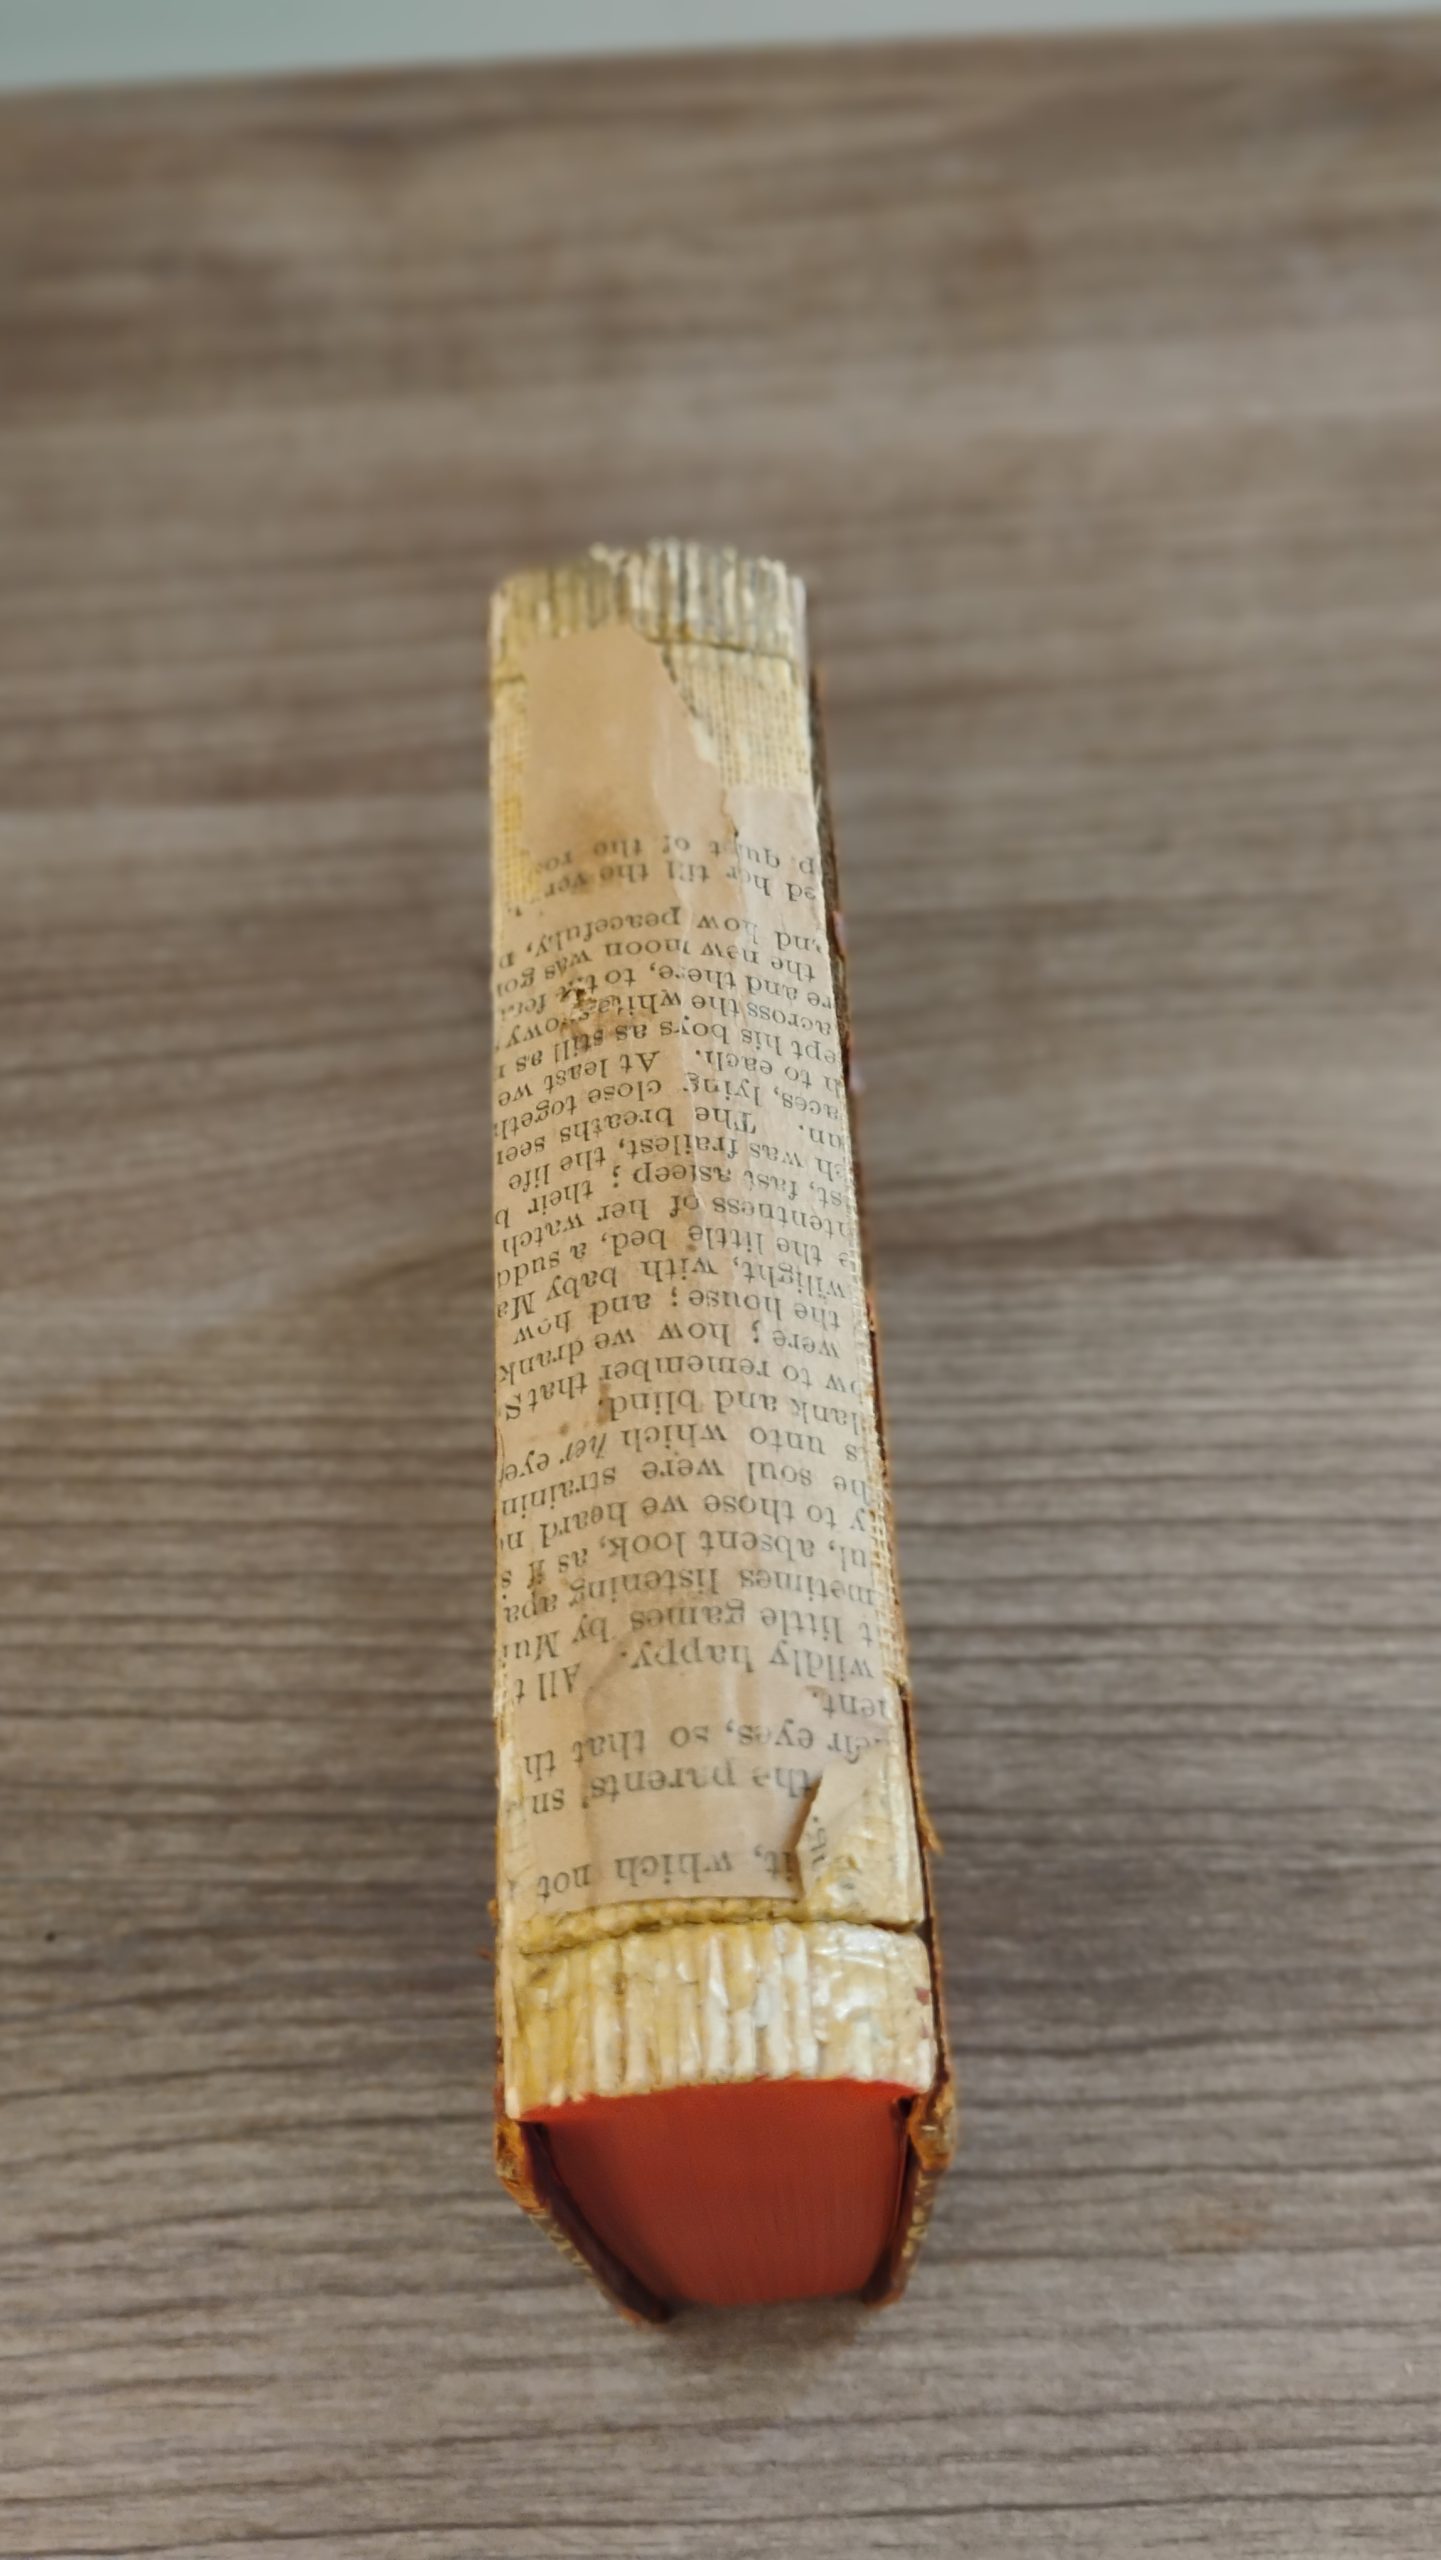 it, which not
the parents' sn
eir eyes, so that th
ent.
wildly happy. All t
t little games by Mu
metimes listening apa
ul, absent look, as if s
y to those we heard n
he soul were strainin
s unto which her eye
lank and blind.
ow to remember that S
were ; how we drank
the house ; and how
wilight, with baby Ma
e the little bed, a sudd
ntentness of her watch
st, fast asleep ; their b
ch was frailest, the life
an. The breaths seem
aces, lying close togeth
h to each. At least we
ept his boys as still as
across the white snowy
re and there, to the
the new moon was goi
and how peacefully,
ed her till the ver
of the ro